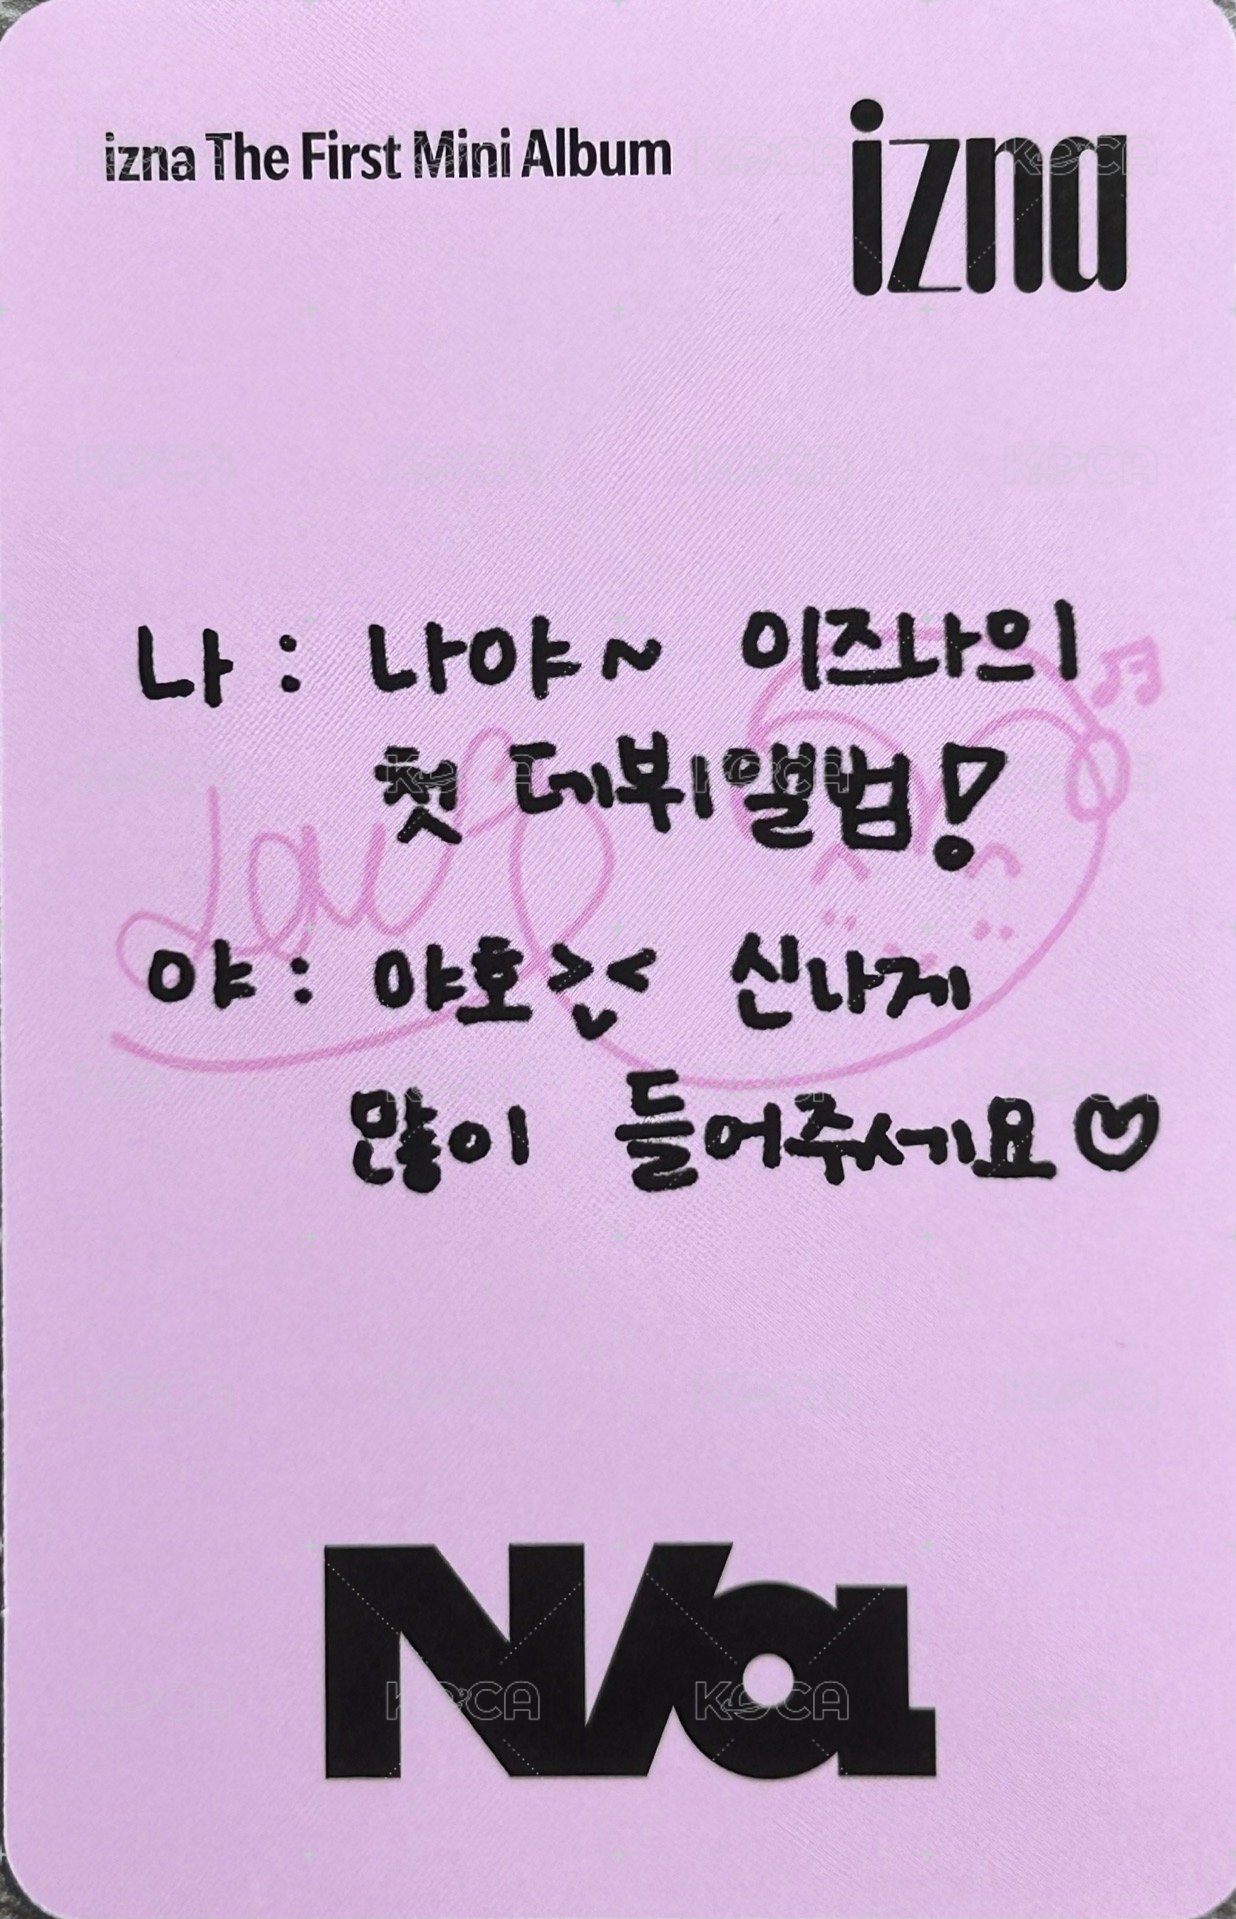 izna The First Mini Album
izna
나 : 나야~ 이즈나의
첫 데뷔앨범!
야 : 야호 >.< 신나게
많이 들어주세요♡
N/a
KOCA